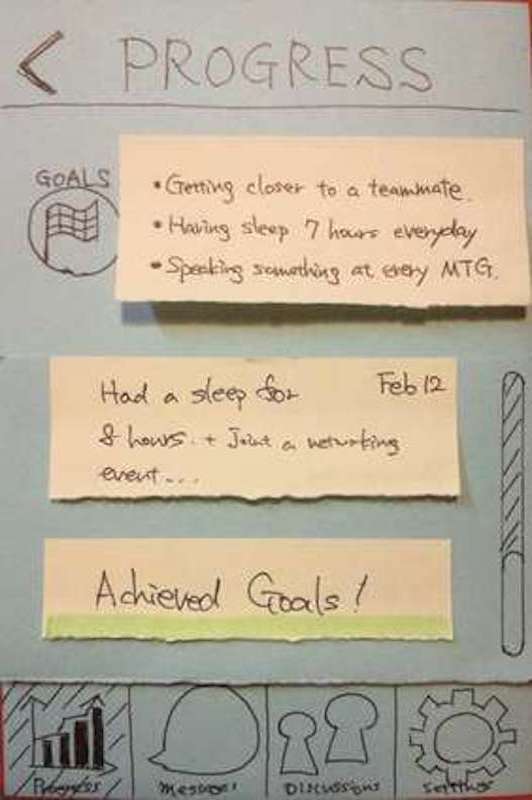 < PROGRESS
GOALS
• Getting closer to a teammate.
• Having sleep 7 hours everyday
• Speaking something at every MTG.
Had a sleep for
Feb 12
8 hours. + Joint a networking
event...
Achieved Goals!
Progress
Messages
Discussions
Settings